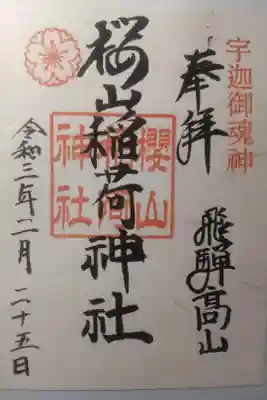 宇迦御魂神
奉拝
飛騨高山
桜山稲荷神社
櫻山稲荷神社
令和三年二月二十五日